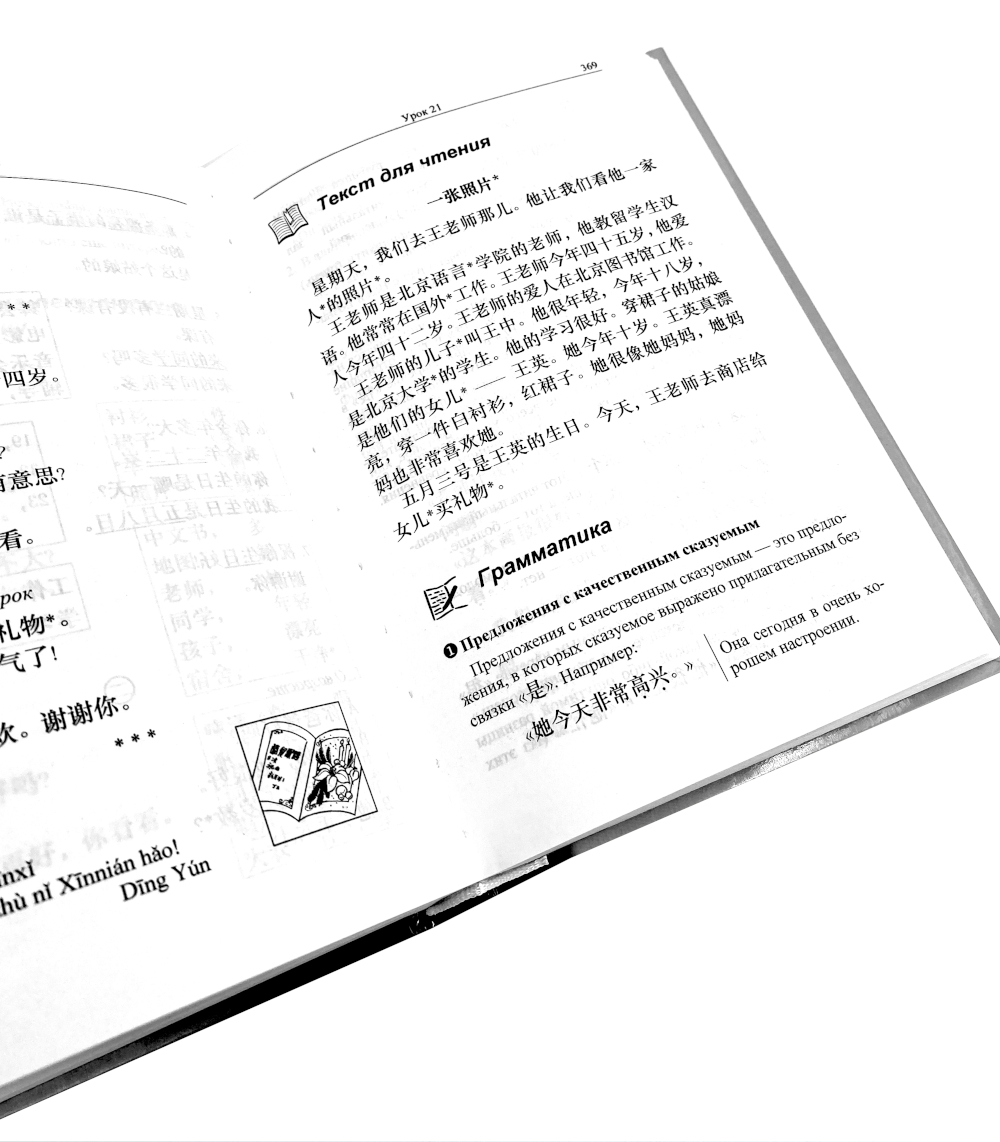 * *
四岁。
?
有意思?
看。
рок
礼物*。
气了!
欢。谢谢你。
* * *
nxǐ
hù nǐ Xīnnián hǎo!
Dīng Yún
369
Урок 21
Текст для чтения
一张照片*
星期天，我们去王老师那儿。他让我们看他一家
人*的照片*。
王老师是北京语言*学院的老师，他教留学生汉
语。他常常在国外*工作。王老师今年四十五岁，他爱
人今年四十二岁。王老师的爱人在北京图书馆工作。
王老师的儿子*叫王中。他很年轻，今年十八岁，
是北京大学*的学生。他的学习很好。穿裙子的姑娘
是他们的女儿* —— 王英。她今年十岁。王英真漂
亮，穿一件白衬衫，红裙子。她很像她妈妈，她妈
妈也非常喜欢她。
五月三号是王英的生日。今天，王老师去商店给
女儿*买礼物*。
Грамматика
❶ Предложения с качественным сказуемым
Предложения с качественным сказуемым — это предло-
жения, в которых сказуемое выражено прилагательным без
связки «是». Например:
«她今天非常高兴。»
Она сегодня в очень хо-
рошем настроении.